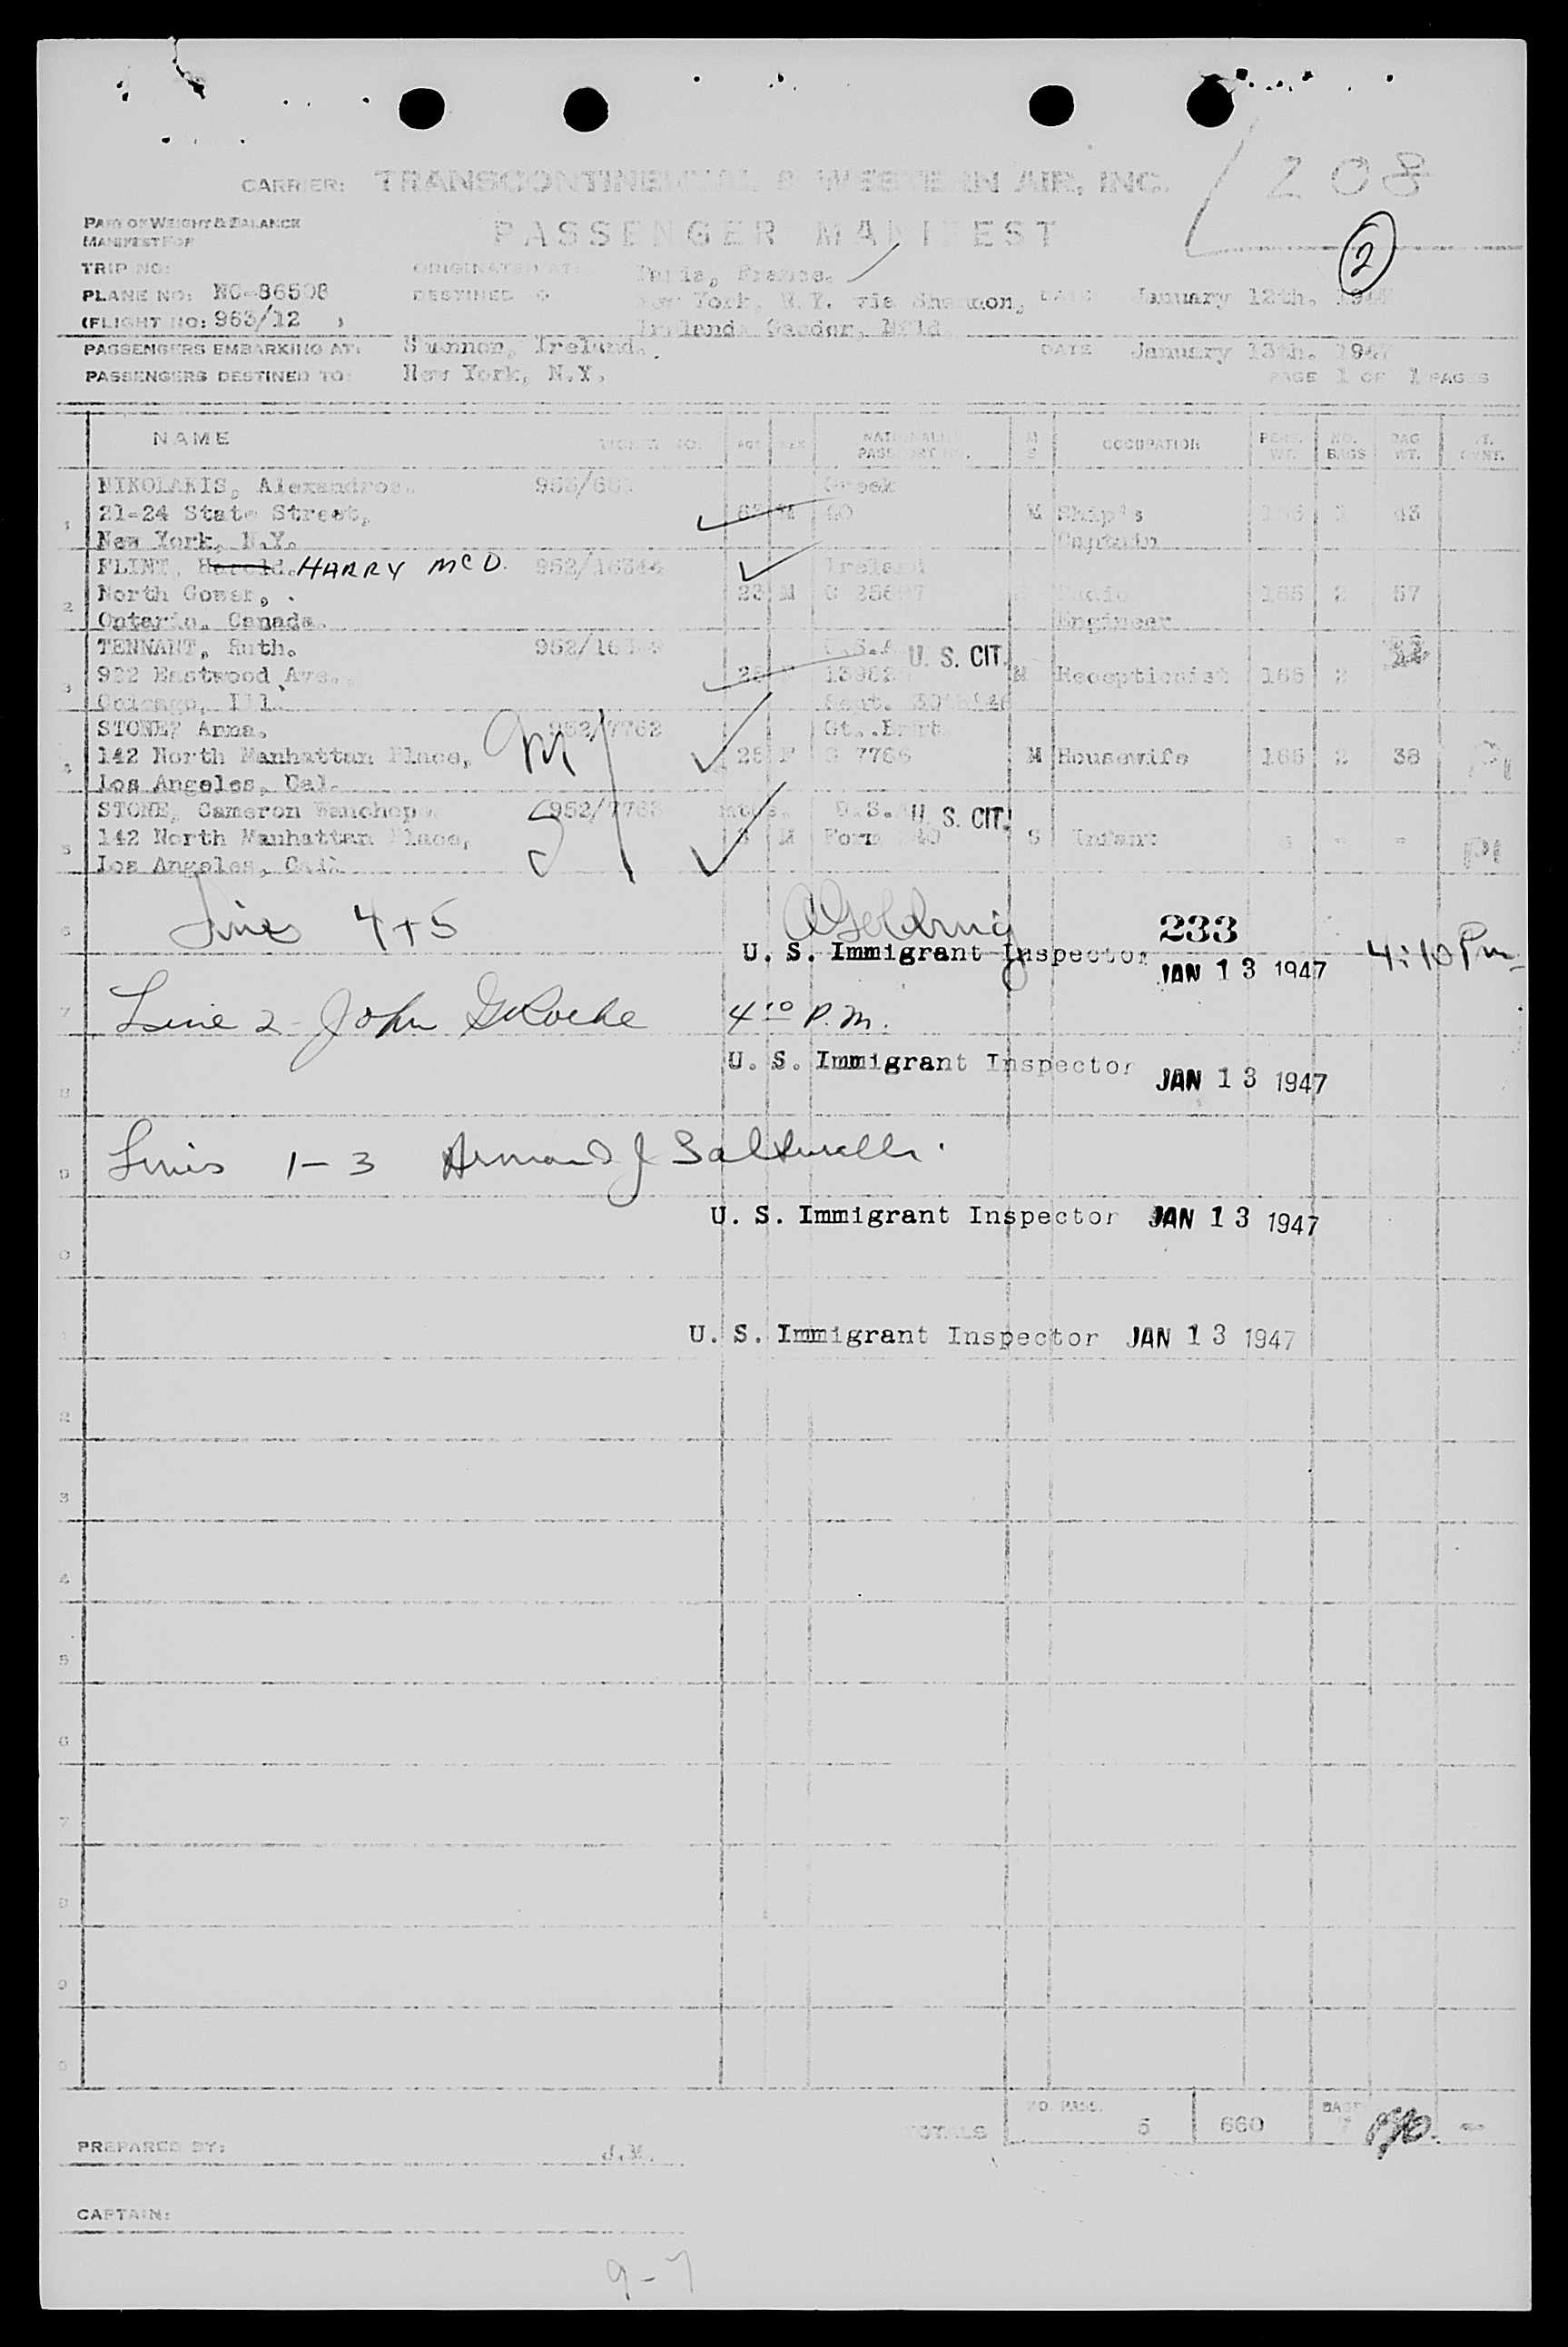 208
CARRIER: TRANSCONTINENTAL & WESTERN AIR, INC.
PART OF WEIGHT & BALANCE
MANIFEST FOR
PASSENGER MANIFEST
2
TRIP NO:
ORIGINATED AT: Paris, France.
PLANE NO: NC-86508
DESTINED TO New York, N.Y. via Shannon, DATE January 12th.
(FLIGHT NO: 963/12 ) Ireland Gander, Nfld
PASSENGERS EMBARKING AT: Shannon, Ireland. DATE January 13th. 1947
PASSENGERS DESTINED TO: New York, N.Y. PAGE 1 OF 1 PAGES
NAME TICKET NO. AGE SEX NATIONALITY PASSPORT NO. M S OCCUPATION PERS. WT. NO. BAGS BAG WT.
NIKOLAKIS, Alexandros. Greek
1 21-24 State Street, M M Ship's 43
New York, N.Y. Captain
FLINT, Harold. HARRY McD. 952/16344 Ireland
2 North Gower, 23 M Radio 165 2 57
Ontario, Canada. Engineer
TENNANT, Ruth. U.S.A U. S. CIT.
3 932 Eastwood Ave., M Receptionist 165 2
Chicago, Ill.
STONE, Anna. 952/7762 Gt. Brit
4 142 North Manhattan Place, 28 F M Housewife 165 2 38
Los Angeles, Cal.
STONE, Cameron 952/7763 mths. U.S. U. S. CIT.
5 142 North Manhattan Place, M Form S Infant - -
Los Angeles, Cal.
6 Lines 4+5
U. S. Immigrant Inspector 233 JAN 13 1947 4:10 Pm
7 Line 2 - John G Roche 4 10 P.M.
8 U. S. Immigrant Inspector JAN 13 1947
9 Lines 1-3 Armand J
U. S. Immigrant Inspector JAN 13 1947
0
1 U. S. Immigrant Inspector JAN 13 1947
2
3
4
5
6
7
8
9
0
TOTALS NO. PASS. 5 660 BAGS 7 -
PREPARED BY: J.M.
CAPTAIN:
9-7